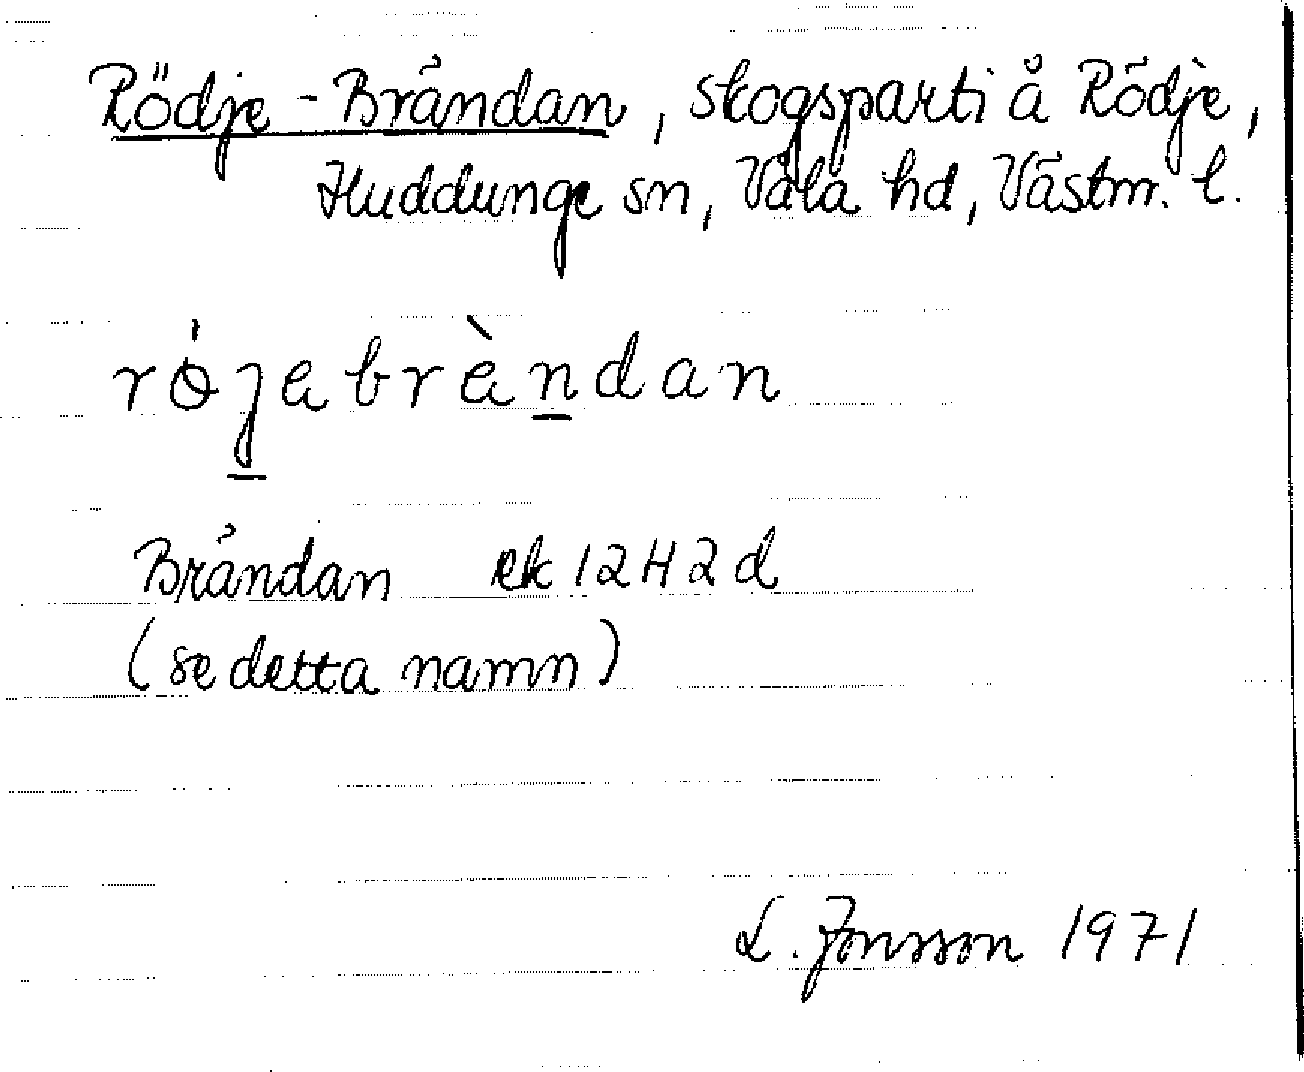 Rödje-Brändan, skogsparti å Rödje,
Huddunge sn, Våla hd, Västm. l.
rө́jebrèndan
Brändan ek 12H2d
(se detta namn)
L. Jonsson 1971